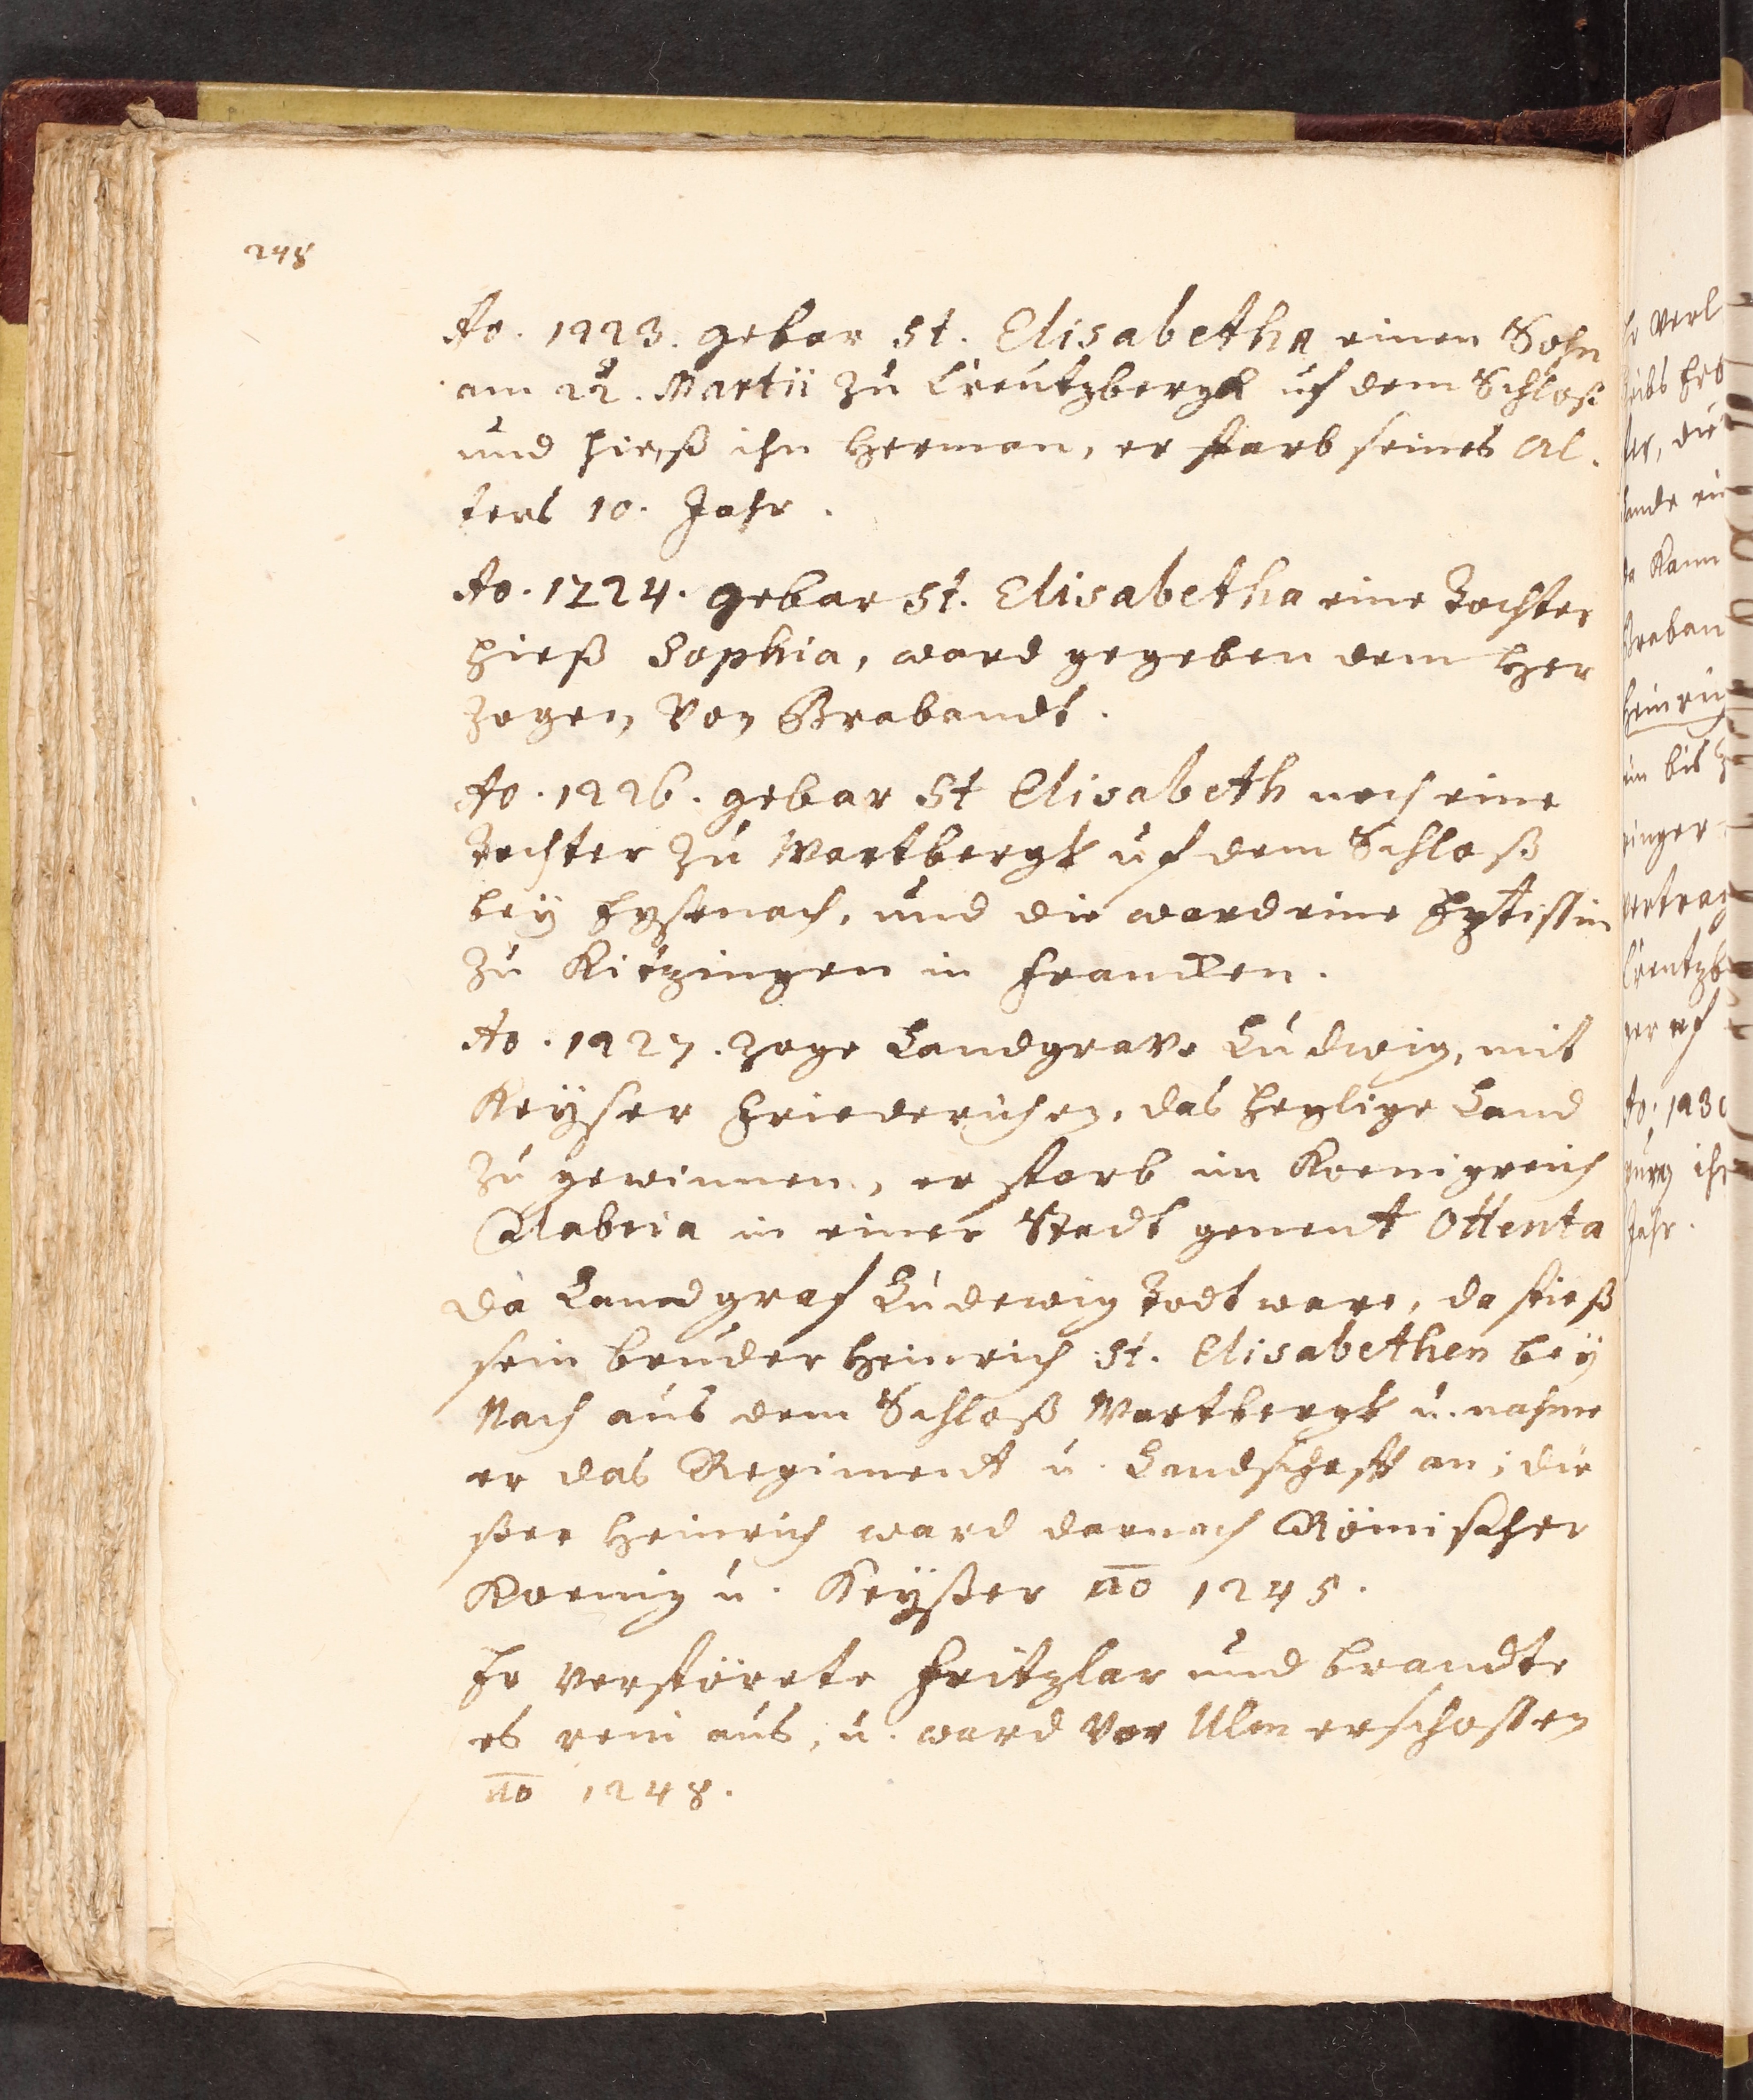 248
Ao. 1223. gebar St. Elisabetha einen Sohn
am 22. Martii zu Creutzbergk uf dem Schloß
und hieß ihn Herman, er starb seines Al-
ters 10. Jahr.
Ao. 1224. gebar St. Elisabetha eine Tochter
hieß Sophia, ward gegeben dem Her
zogen von Brabandt.
Ao. 1226. gebar St Elisabeth noch eine
Tochter zu Wartbergk uf dem Schloß
bey Eysenach, und die ward eine Eptissin
zu Kitzingen in Francken.
Ao. 1227. zoge Landgrave Ludwig, mit
Keyser Friederichen, das heylige Land
zu gewinnen, er starb im Koenigreich
in einer Stadt genent Ottenta
Da Landgraf Ludewig todt ware, da stieß
sein bruder Heinrich St. Elisabethen bey
Nach aus dem Schloß Wartbergk u. nahme
er das Regiment u. Landschafft an; die
ßer Heinrich ward darnach Römischer
Koenig u. Keyßer ao 1245.
Er verstörete Fritzlar und brandte
es rein aus, u. ward vor Ulm erschossen
ao 1248.
verl
die
Kann
Braban
Heinrich
bis
ringer
vertrag
Creutzb
Ao. 1230
Jahr.